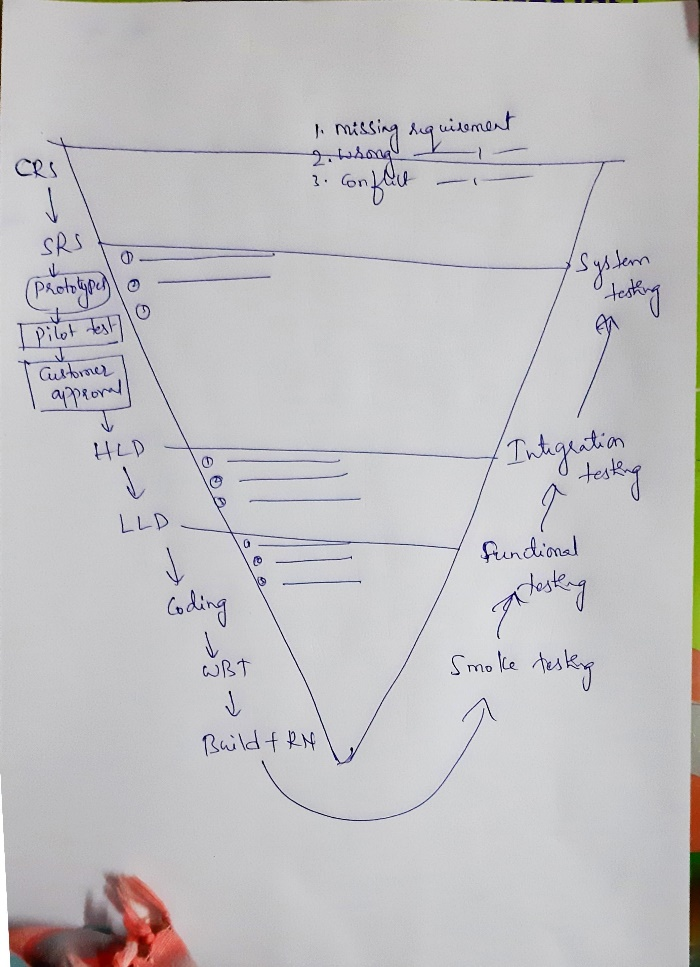 1. missing requirement
2. wrong —ı—
3. conflict —ı—
CRS
SRS
Prototypes
Pilot test
Customer
approval
HLD
LLD
Coding
WBT
Build + RN
①
②
③
①
②
③
①
②
③
System
testing
Integration
testing
functional
testing
Smoke testing